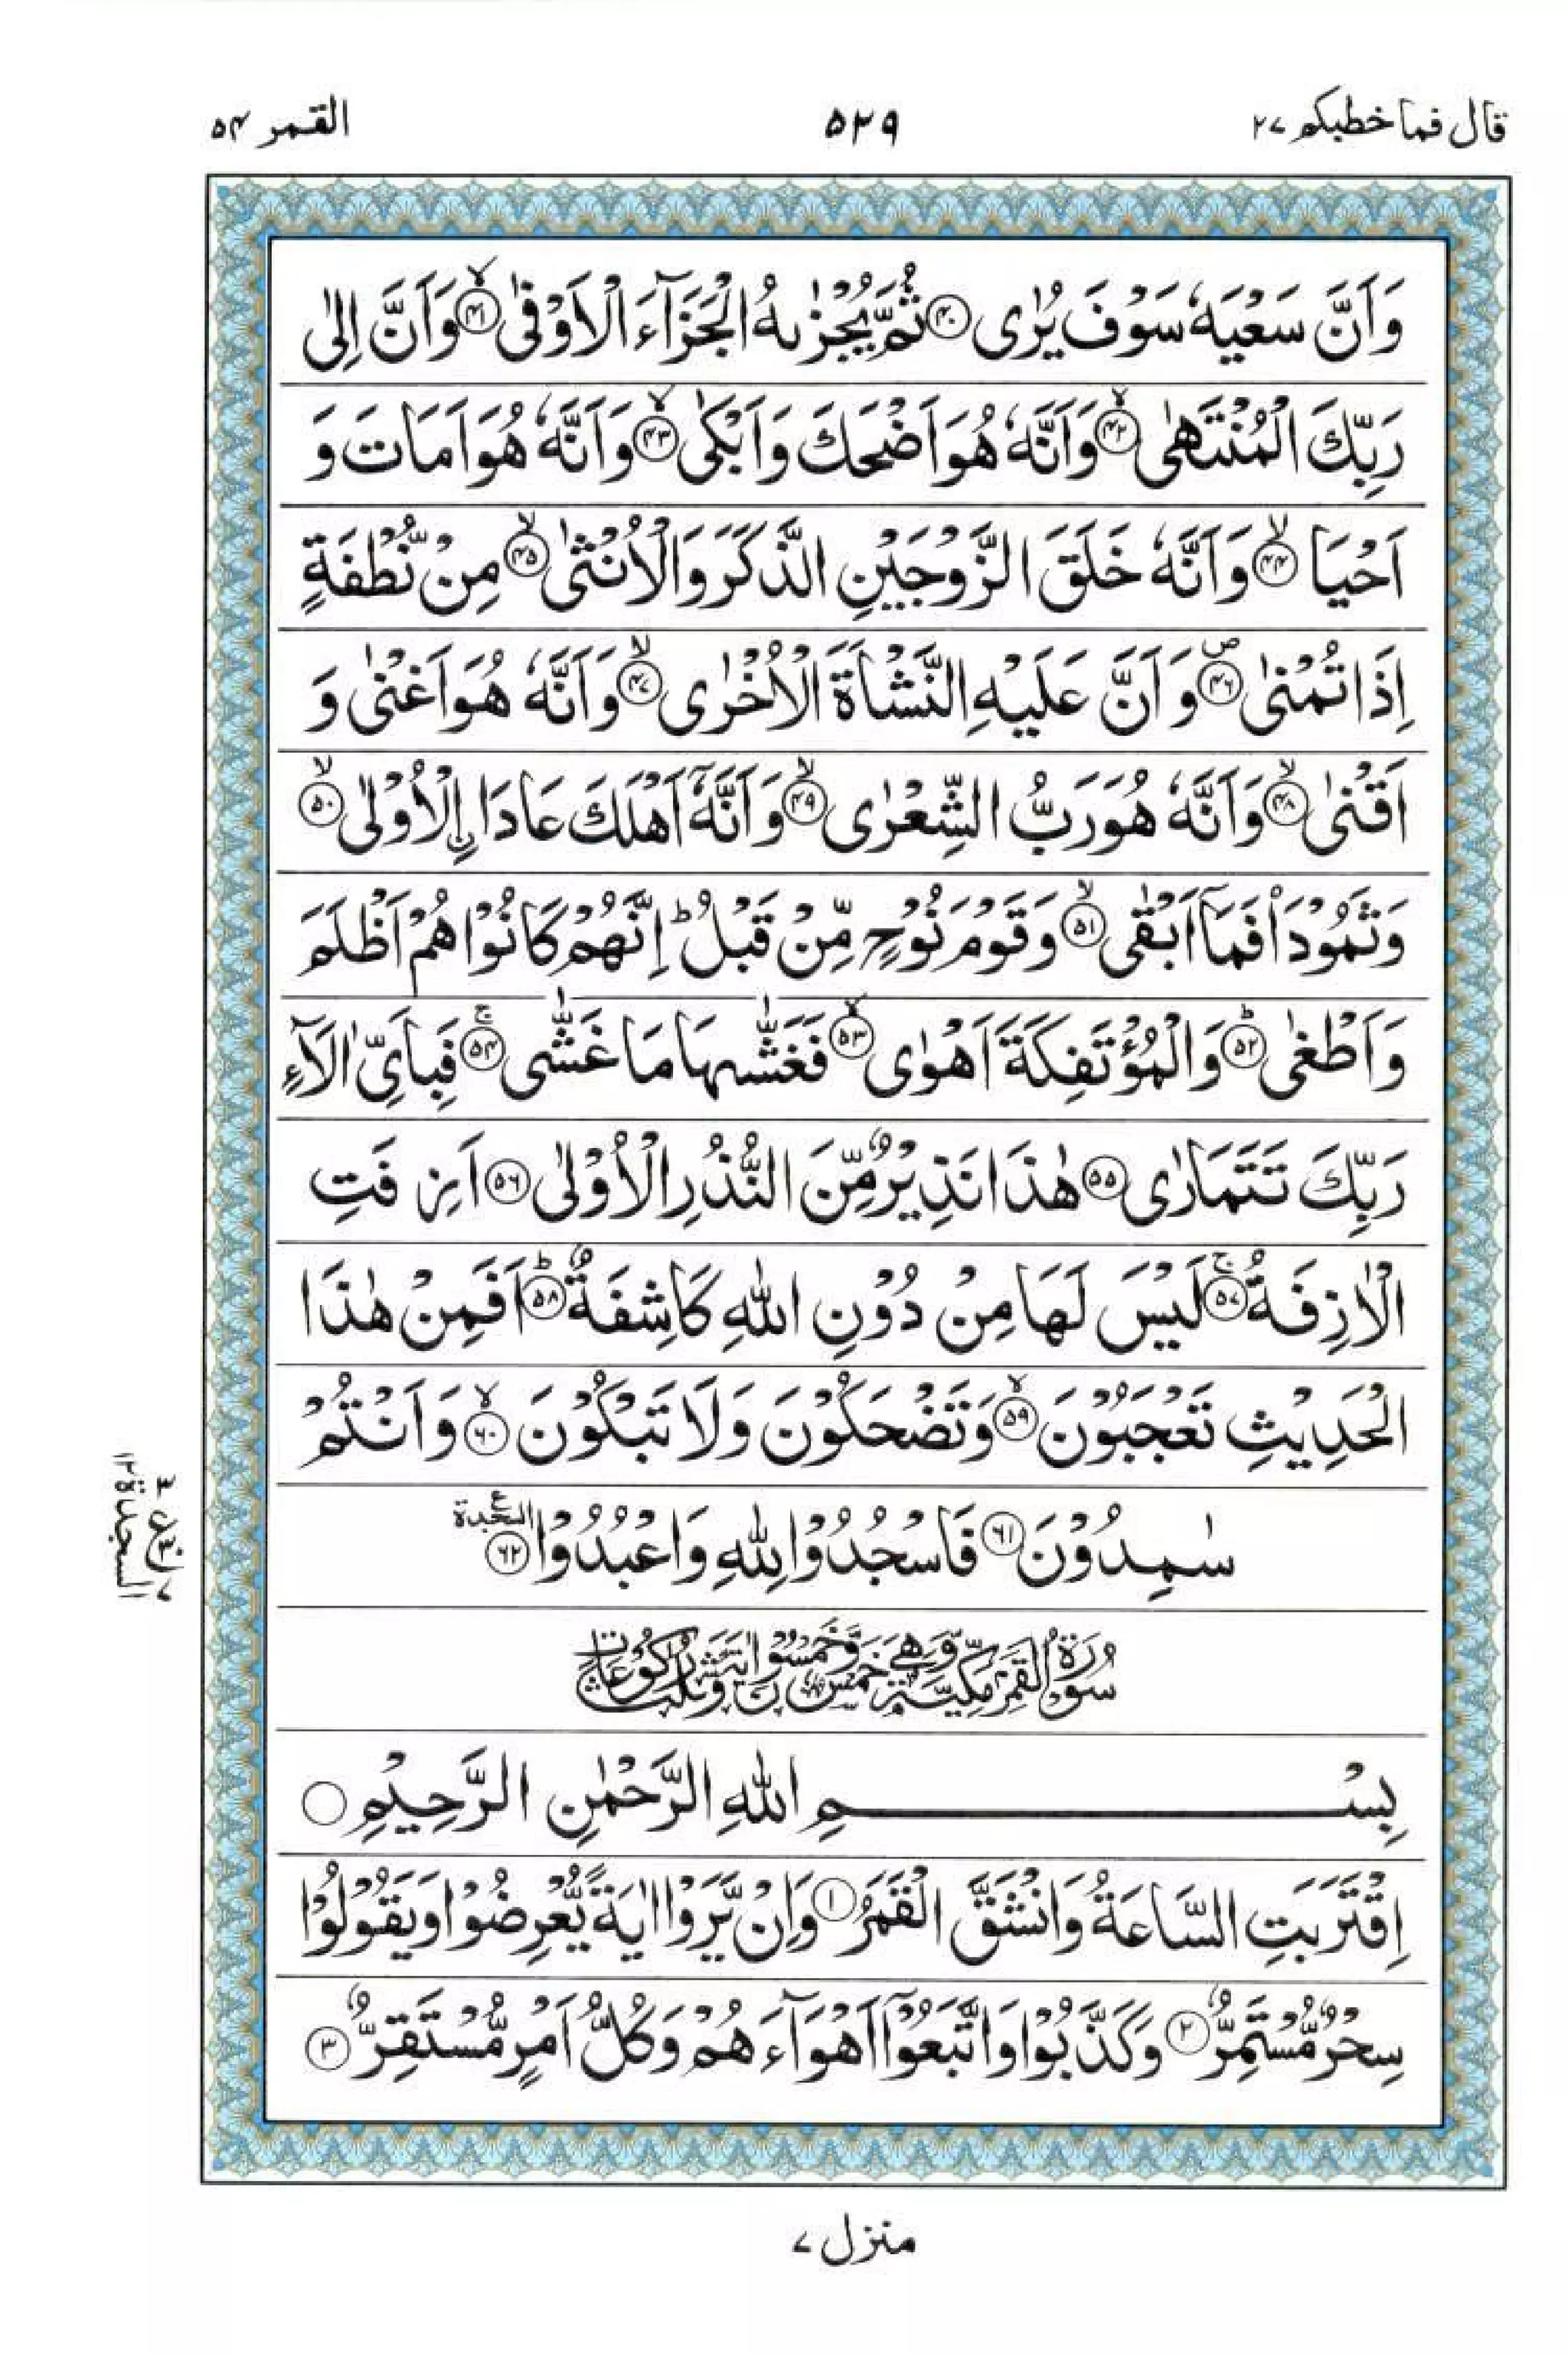 قال فما خطبكم ۲۷
۵۲۹
القمر ۵۴
وَاَنَّ سَعْيَهٗ سَوْفَ يُرٰى ﴿۴۰﴾ ثُمَّ يُجْزٰىهُ الْجَزَآءَ الْاَوْفٰى ۙ﴿۴۱﴾ وَاَنَّ اِلٰى
رَبِّكَ الْمُنْتَهٰى ۙ﴿۴۲﴾ وَاَنَّهٗ هُوَ اَضْحَكَ وَاَبْكٰى ۙ﴿۴۳﴾ وَاَنَّهٗ هُوَ اَمَاتَ وَ
اَحْيَا ۙ﴿۴۴﴾ وَاَنَّهٗ خَلَقَ الزَّوْجَيْنِ الذَّكَرَ وَالْاُنْثٰى ۙ﴿۴۵﴾ مِنْ نُّطْفَةٍ
اِذَا تُمْنٰى ۪﴿۴۶﴾ وَاَنَّ عَلَيْهِ النَّشْاَةَ الْاُخْرٰى ۙ﴿۴۷﴾ وَاَنَّهٗ هُوَ اَغْنٰى وَ
اَقْنٰى ۙ﴿۴۸﴾ وَاَنَّهٗ هُوَ رَبُّ الشِّعْرٰى ۙ﴿۴۹﴾ وَاَنَّهٗۤ اَهْلَكَ عَادَا ِ۟الْاُوْلٰى ۙ﴿۵۰﴾
وَثَمُوْدَا۟ فَمَاۤ اَبْقٰى ۙ﴿۵۱﴾ وَقَوْمَ نُوْحٍ مِّنْ قَبْلُ ؕ اِنَّهُمْ كَانُوْا هُمْ اَظْلَمَ
وَاَطْغٰى ؕ﴿۵۲﴾ وَالْمُؤْتَفِكَةَ اَهْوٰى ۙ﴿۵۳﴾ فَغَشّٰىهَا مَا غَشّٰى ۚ﴿۵۴﴾ فَبِاَىِّ اٰلَآءِ
رَبِّكَ تَتَمَارٰى ﴿۵۵﴾ هٰذَا نَذِيْرٌ مِّنَ النُّذُرِ الْاُوْلٰى ﴿۵۶﴾ اَزِفَتِ
الْاٰزِفَةُ ۚ﴿۵۷﴾ لَيْسَ لَهَا مِنْ دُوْنِ اللّٰهِ كَاشِفَةٌ ؕ﴿۵۸﴾ اَفَمِنْ هٰذَا
الْحَدِيْثِ تَعْجَبُوْنَ ۙ﴿۵۹﴾ وَتَضْحَكُوْنَ وَلَا تَبْكُوْنَ ۙ﴿۶۰﴾ وَاَنْتُمْ
سٰمِدُوْنَ ﴿۶۱﴾ فَاسْجُدُوْا لِلّٰهِ وَاعْبُدُوْا ﴿۶۲﴾ السجدة ع
۳ ع ۷
السجدة ۱۲
سُوْرَةُ الْقَمَرِ مَكِّيَّةٌ وَّهِيَ خَمْسٌ وَّخَمْسُوْنَ اٰيَةً وَّثَلٰثُ رُكُوْعَاتٍ
بِسْمِ اللّٰهِ الرَّحْمٰنِ الرَّحِيْمِ ○
اِقْتَرَبَتِ السَّاعَةُ وَانْشَقَّ الْقَمَرُ ﴿۱﴾ وَاِنْ يَّرَوْا اٰيَةً يُّعْرِضُوْا وَيَقُوْلُوْا
سِحْرٌ مُّسْتَمِرٌّ ﴿۲﴾ وَكَذَّبُوْا وَاتَّبَعُوْۤا اَهْوَآءَهُمْ وَكُلُّ اَمْرٍ مُّسْتَقِرٌّ ﴿۳﴾
منزل ۷